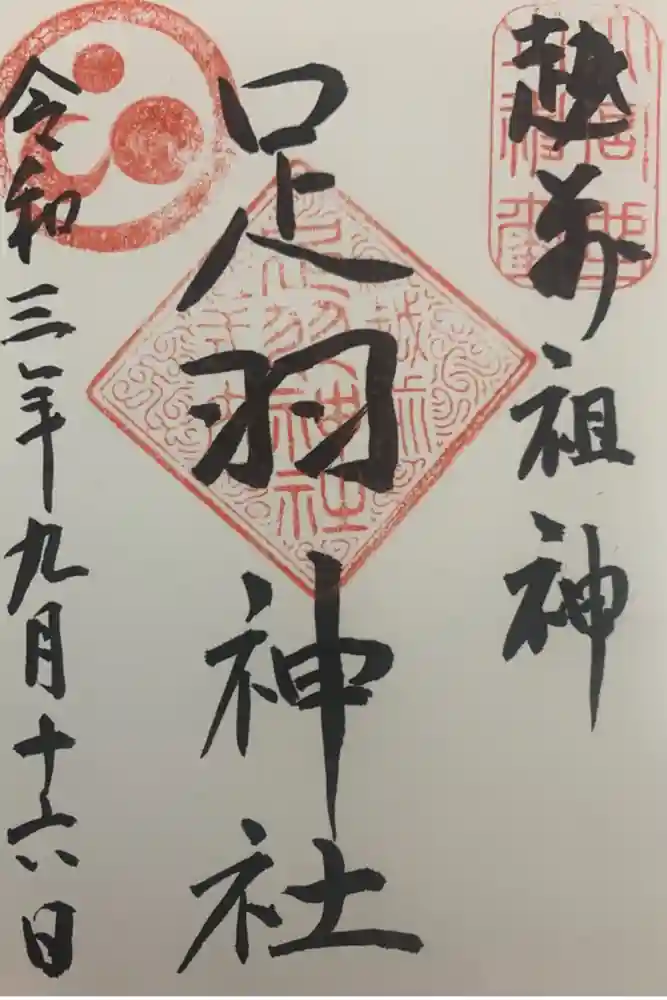 越前祖神
足羽神社
令和三年九月十六日
足羽神社